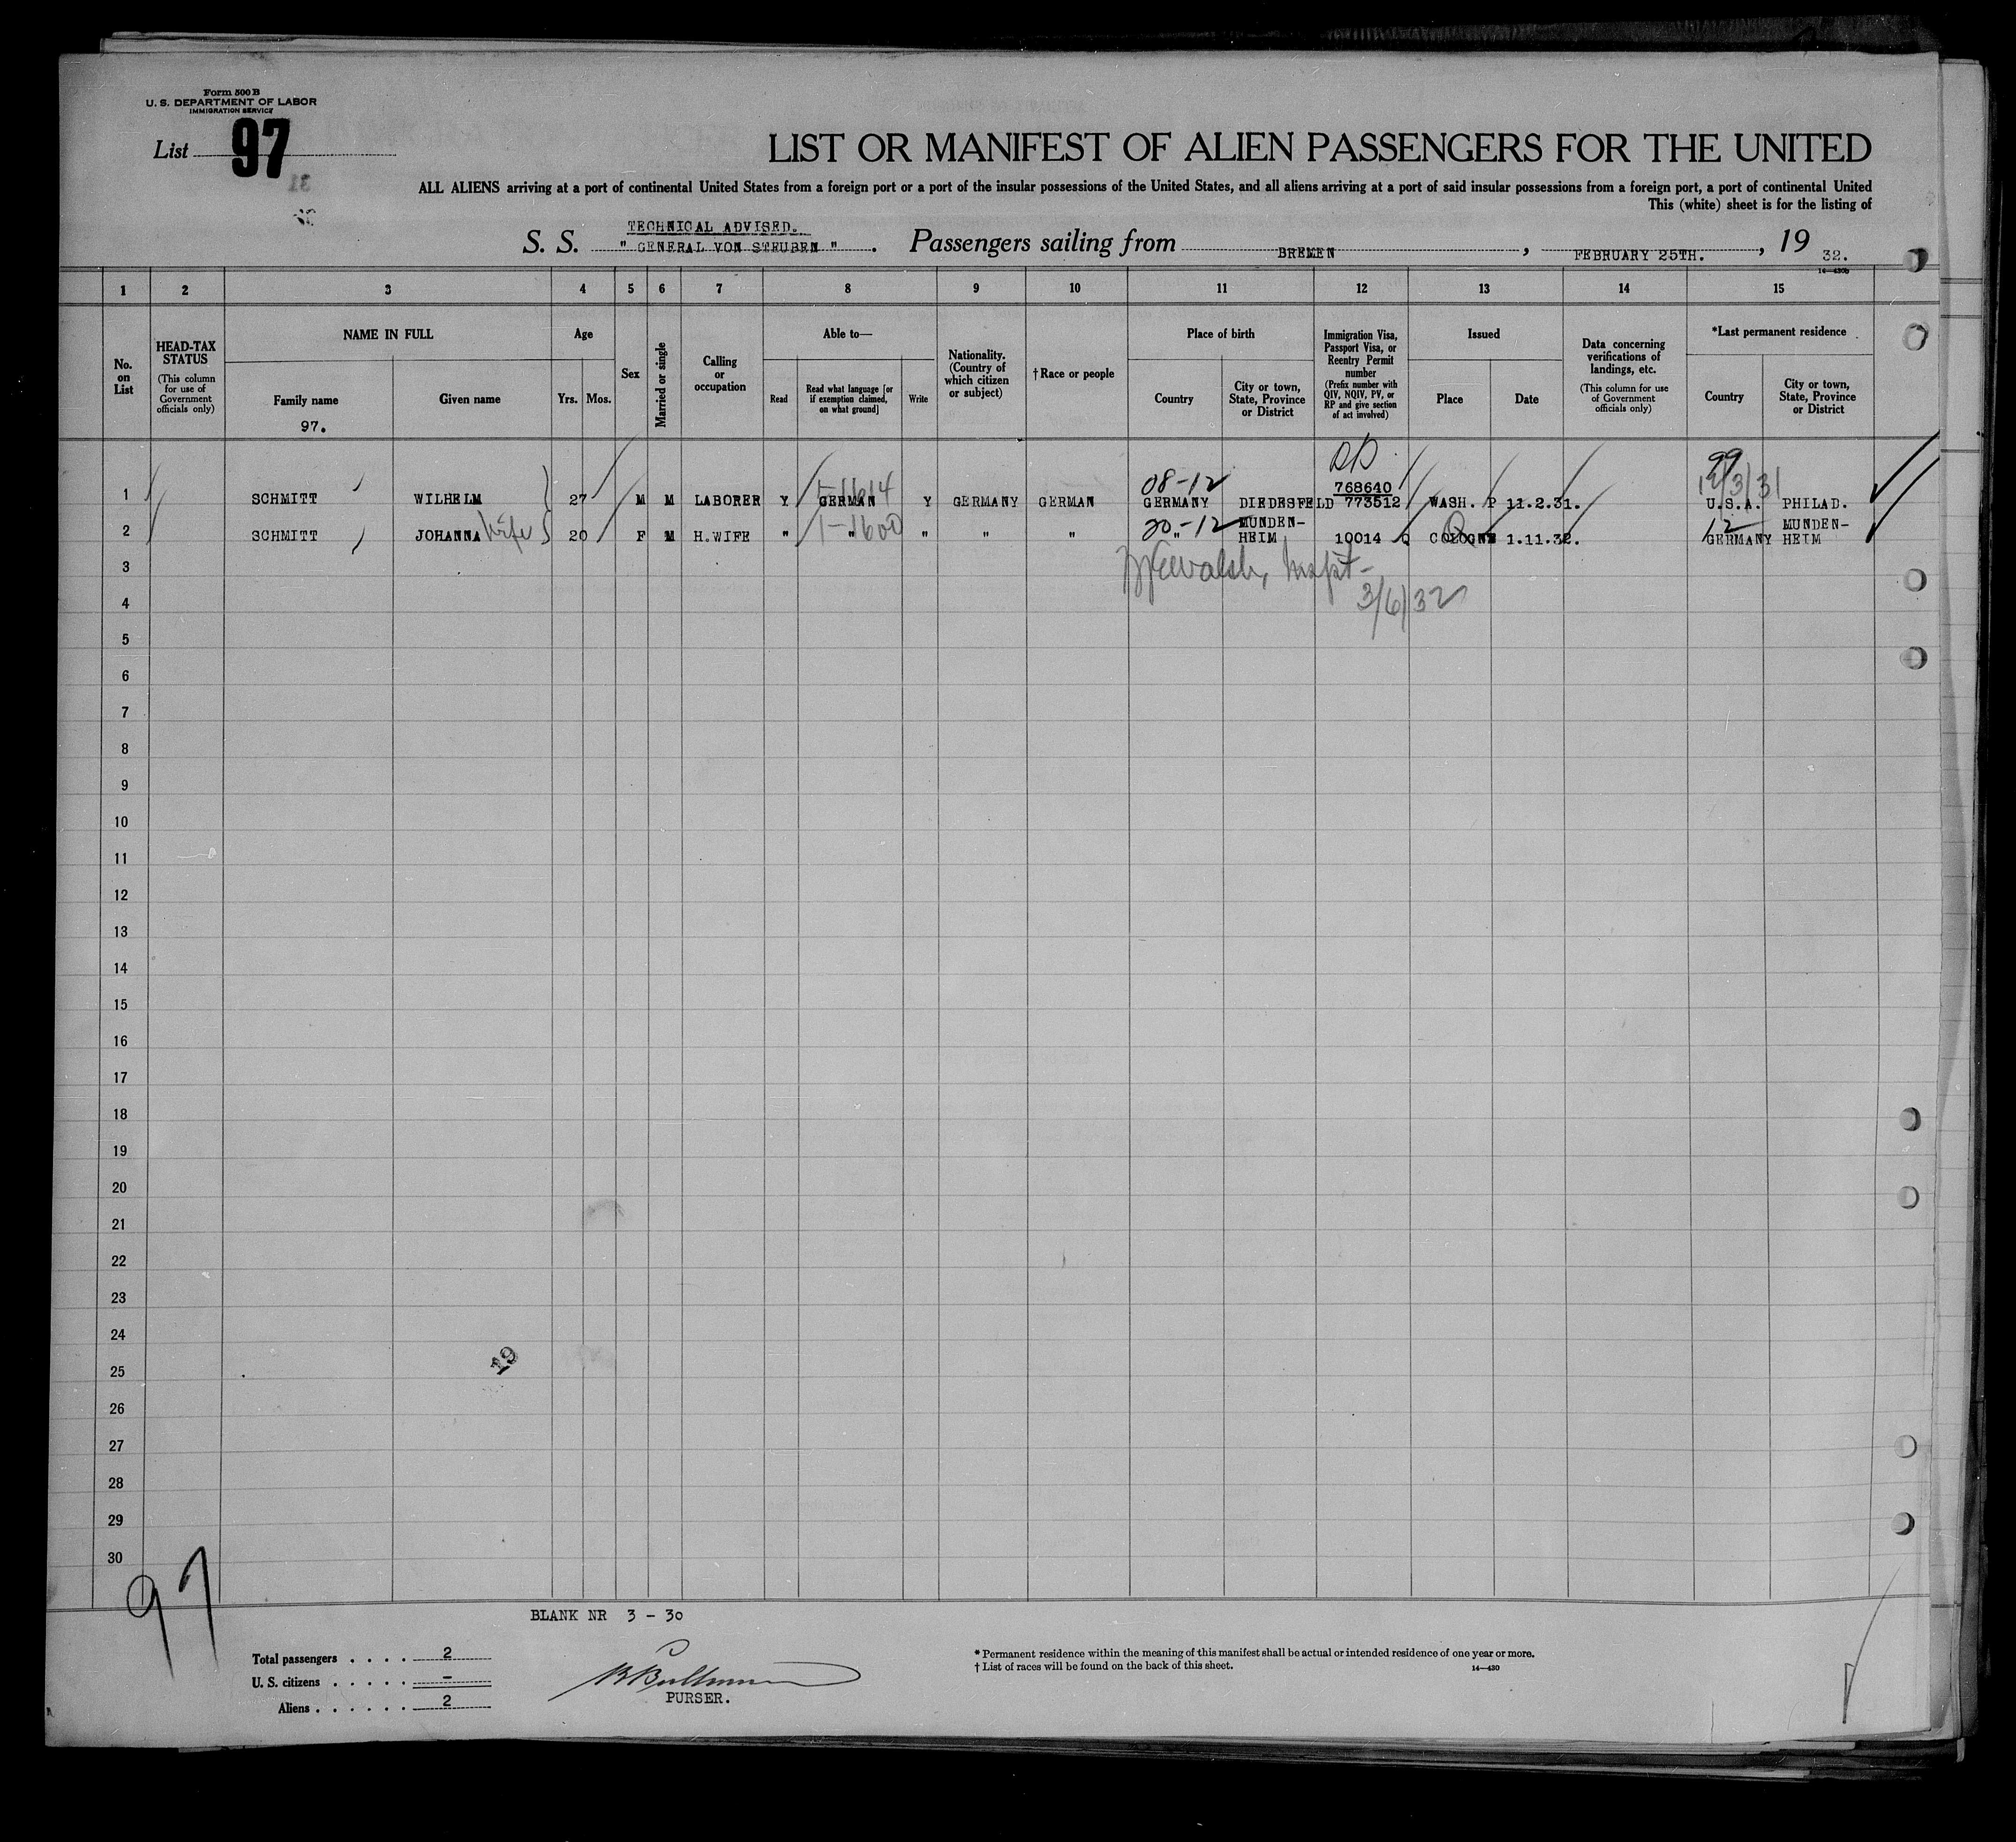 Form 500 B
U. S. DEPARTMENT OF LABOR
IMMIGRATION SERVICE
List 97
LIST OR MANIFEST OF ALIEN PASSENGERS FOR THE UNITED
ALL ALIENS arriving at a port of continental United States from a foreign port or a port of the insular possessions of the United States, and all aliens arriving at a port of said insular possessions from a foreign port, a port of continental United
This (white) sheet is for the listing of
TECHNICAL ADVISED.
S. S. " GENERAL VON STEUBEN " . Passengers sailing from BREMEN , FEBRUARY 25TH. , 19 32.
14—430b
1 2 3 4 5 6 7 8 9 10 11 12 13 14 15
No. on List
HEAD-TAX STATUS
(This column for use of Government officials only)
NAME IN FULL
Family name
97.
Given name
Age
Yrs. Mos.
Sex
Married or single
Calling or occupation
Able to—
Read
Read what language [or if exemption claimed, on what ground]
Write
Nationality. (Country of which citizen or subject)
†Race or people
Place of birth
Country
City or town, State, Province or District
Immigration Visa, Passport Visa, or Reentry Permit number
(Prefix number with QIV, NQIV, PV, or RP and give section of act involved)
Issued
Place
Date
Data concerning verifications of landings, etc.
(This column for use of Government officials only)
*Last permanent residence
Country
City or town, State, Province or District
99
08-12 768640 12/3/31
1 SCHMITT WILHELM 27 M M LABORER Y GERMAN 1-1614 Y GERMANY GERMAN GERMANY DIEDESFELD 773512 WASH. P 11.2.31. U.S.A. PHILAD.
20-12 MUNDEN- 12 MUNDEN-
2 SCHMITT JOHANNA wife 20 F M H.WIFE " " 1-1600 " " " " HEIM 10014 Q COLOGNE 1.11.32. GERMANY HEIM
3 Walsh, Inspt-
4 3/6/32
5
6
7
8
9
10
11
12
13
14
15
16
17
18
19
20
21
22
23
24
25
26
27
28
29
30
97
BLANK NR 3 - 30
Total passengers . . . . 2
U. S. citizens . . . . . -
Aliens . . . . . . 2
PURSER.
* Permanent residence within the meaning of this manifest shall be actual or intended residence of one year or more.
† List of races will be found on the back of this sheet.
14—430